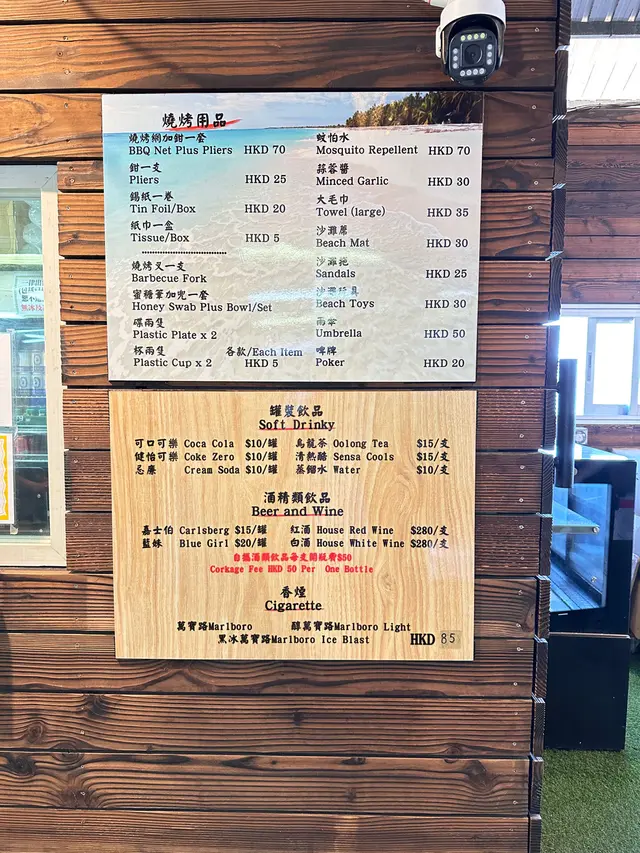 燒烤用品
燒烤網加鉗一套
BBQ Net Plus Pliers HKD 70
鉗一支
Pliers HKD 25
錫紙一卷
Tin Foil/Box HKD 20
紙巾一盒
Tissue/Box HKD 5
燒烤叉一支
Barbecue Fork
蜜糖筆加兜一套
Honey Swab Plus Bowl/Set
碟兩隻
Plastic Plate x 2
杯兩隻 各款/Each Item
Plastic Cup x 2 HKD 5
蚊怕水
Mosquito Repellent HKD 70
蒜蓉醬
Minced Garlic HKD 30
大毛巾
Towel (large) HKD 35
沙灘蓆
Beach Mat HKD 30
沙灘拖
Sandals HKD 25
沙灘玩具
Beach Toys HKD 30
雨傘
Umbrella HKD 50
啤牌
Poker HKD 20
罐裝飲品
Soft Drinky
可口可樂 Coca Cola $10/罐 烏龍茶 Oolong Tea $15/支
健怡可樂 Coke Zero $10/罐 清熱酷 Sensa Cools $15/支
忌廉 Cream Soda $10/罐 蒸餾水 Water $10/支
酒精類飲品
Beer and Wine
嘉士伯 Carlsberg $15/罐 紅酒 House Red Wine $280/支
藍妹 Blue Girl $20/罐 白酒 House White Wine $280/支
自攜酒類飲品每支開瓶費$50
Corkage Fee HKD 50 Per One Bottle
香煙
Cigarette
萬寶路Marlboro 醇萬寶路Marlboro Light
黑冰萬寶路Marlboro Ice Blast HKD 85